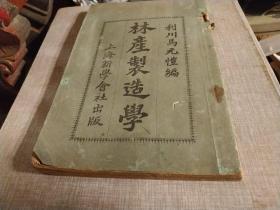 利川馬元愷編
林產製造學
上海新學會社出版